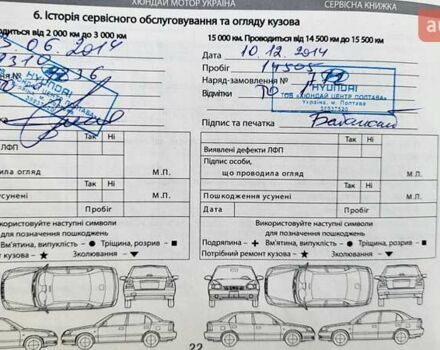 ХЮНДАЙ МОТОР УКРАЇНА
СЕРВІСНА КНИЖКА
6. Історія сервісного обслуговування та огляду кузова
від 2 000 км до 3 000 км
15 000 КМ. Проводиться від 14 500 км до 15 500 км
06. 2014
Дата 10.12.2014
Пробіг 14505
Наряд-замовлення №
Відмітки ТО
HYUNDAI
ТОВ «ХЮНДАЙ ЦЕНТР ПОЛТАВА»
Україна, м. Полтава
HYUNDAI
Підпис та печатка
Так Ні
ЛФП
огляд М.П.
Так Ні
усунені
Пробіг М.П.
Так Ні
Виявлені дефекти ЛФП
Підпис особи,
що проводила огляд М.П.
Так Ні
Пошкодження усунені
Дата Пробіг М.П.
Використовуйте наступні символи
для позначення пошкоджень
Вм'ятина, випуклість – ● Тріщина, розрив – ■
кузова – ★ Зколювання – ▼
Використовуйте наступні символи
для позначення пошкоджень
Подряпина – + Вм'ятина, випуклість – ● Тріщина, розрив – ■
Потрібний ремонт кузова – ★ Зколювання – ▼
22